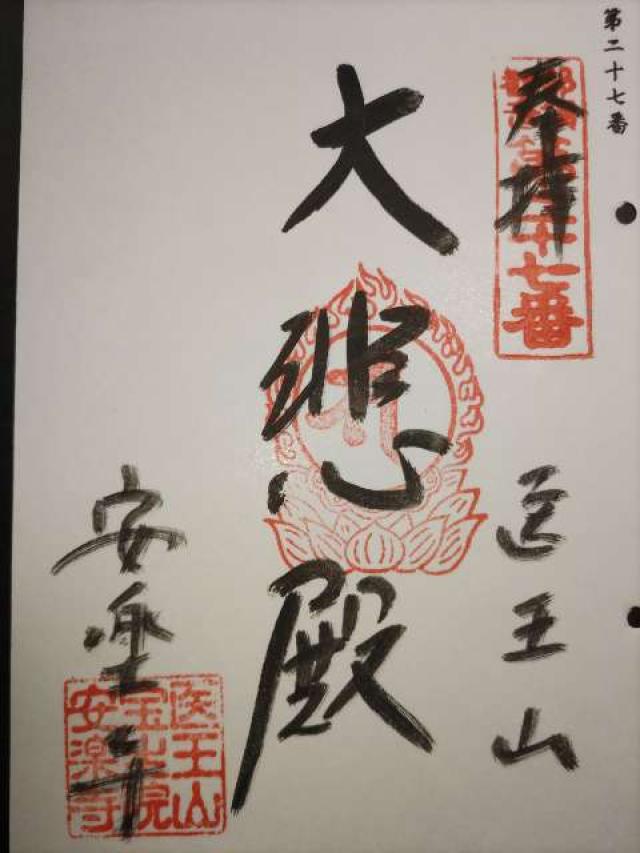 第二十七番
奉拝
二十七番
医王山
大悲殿
安楽寺
医王山
安楽寺